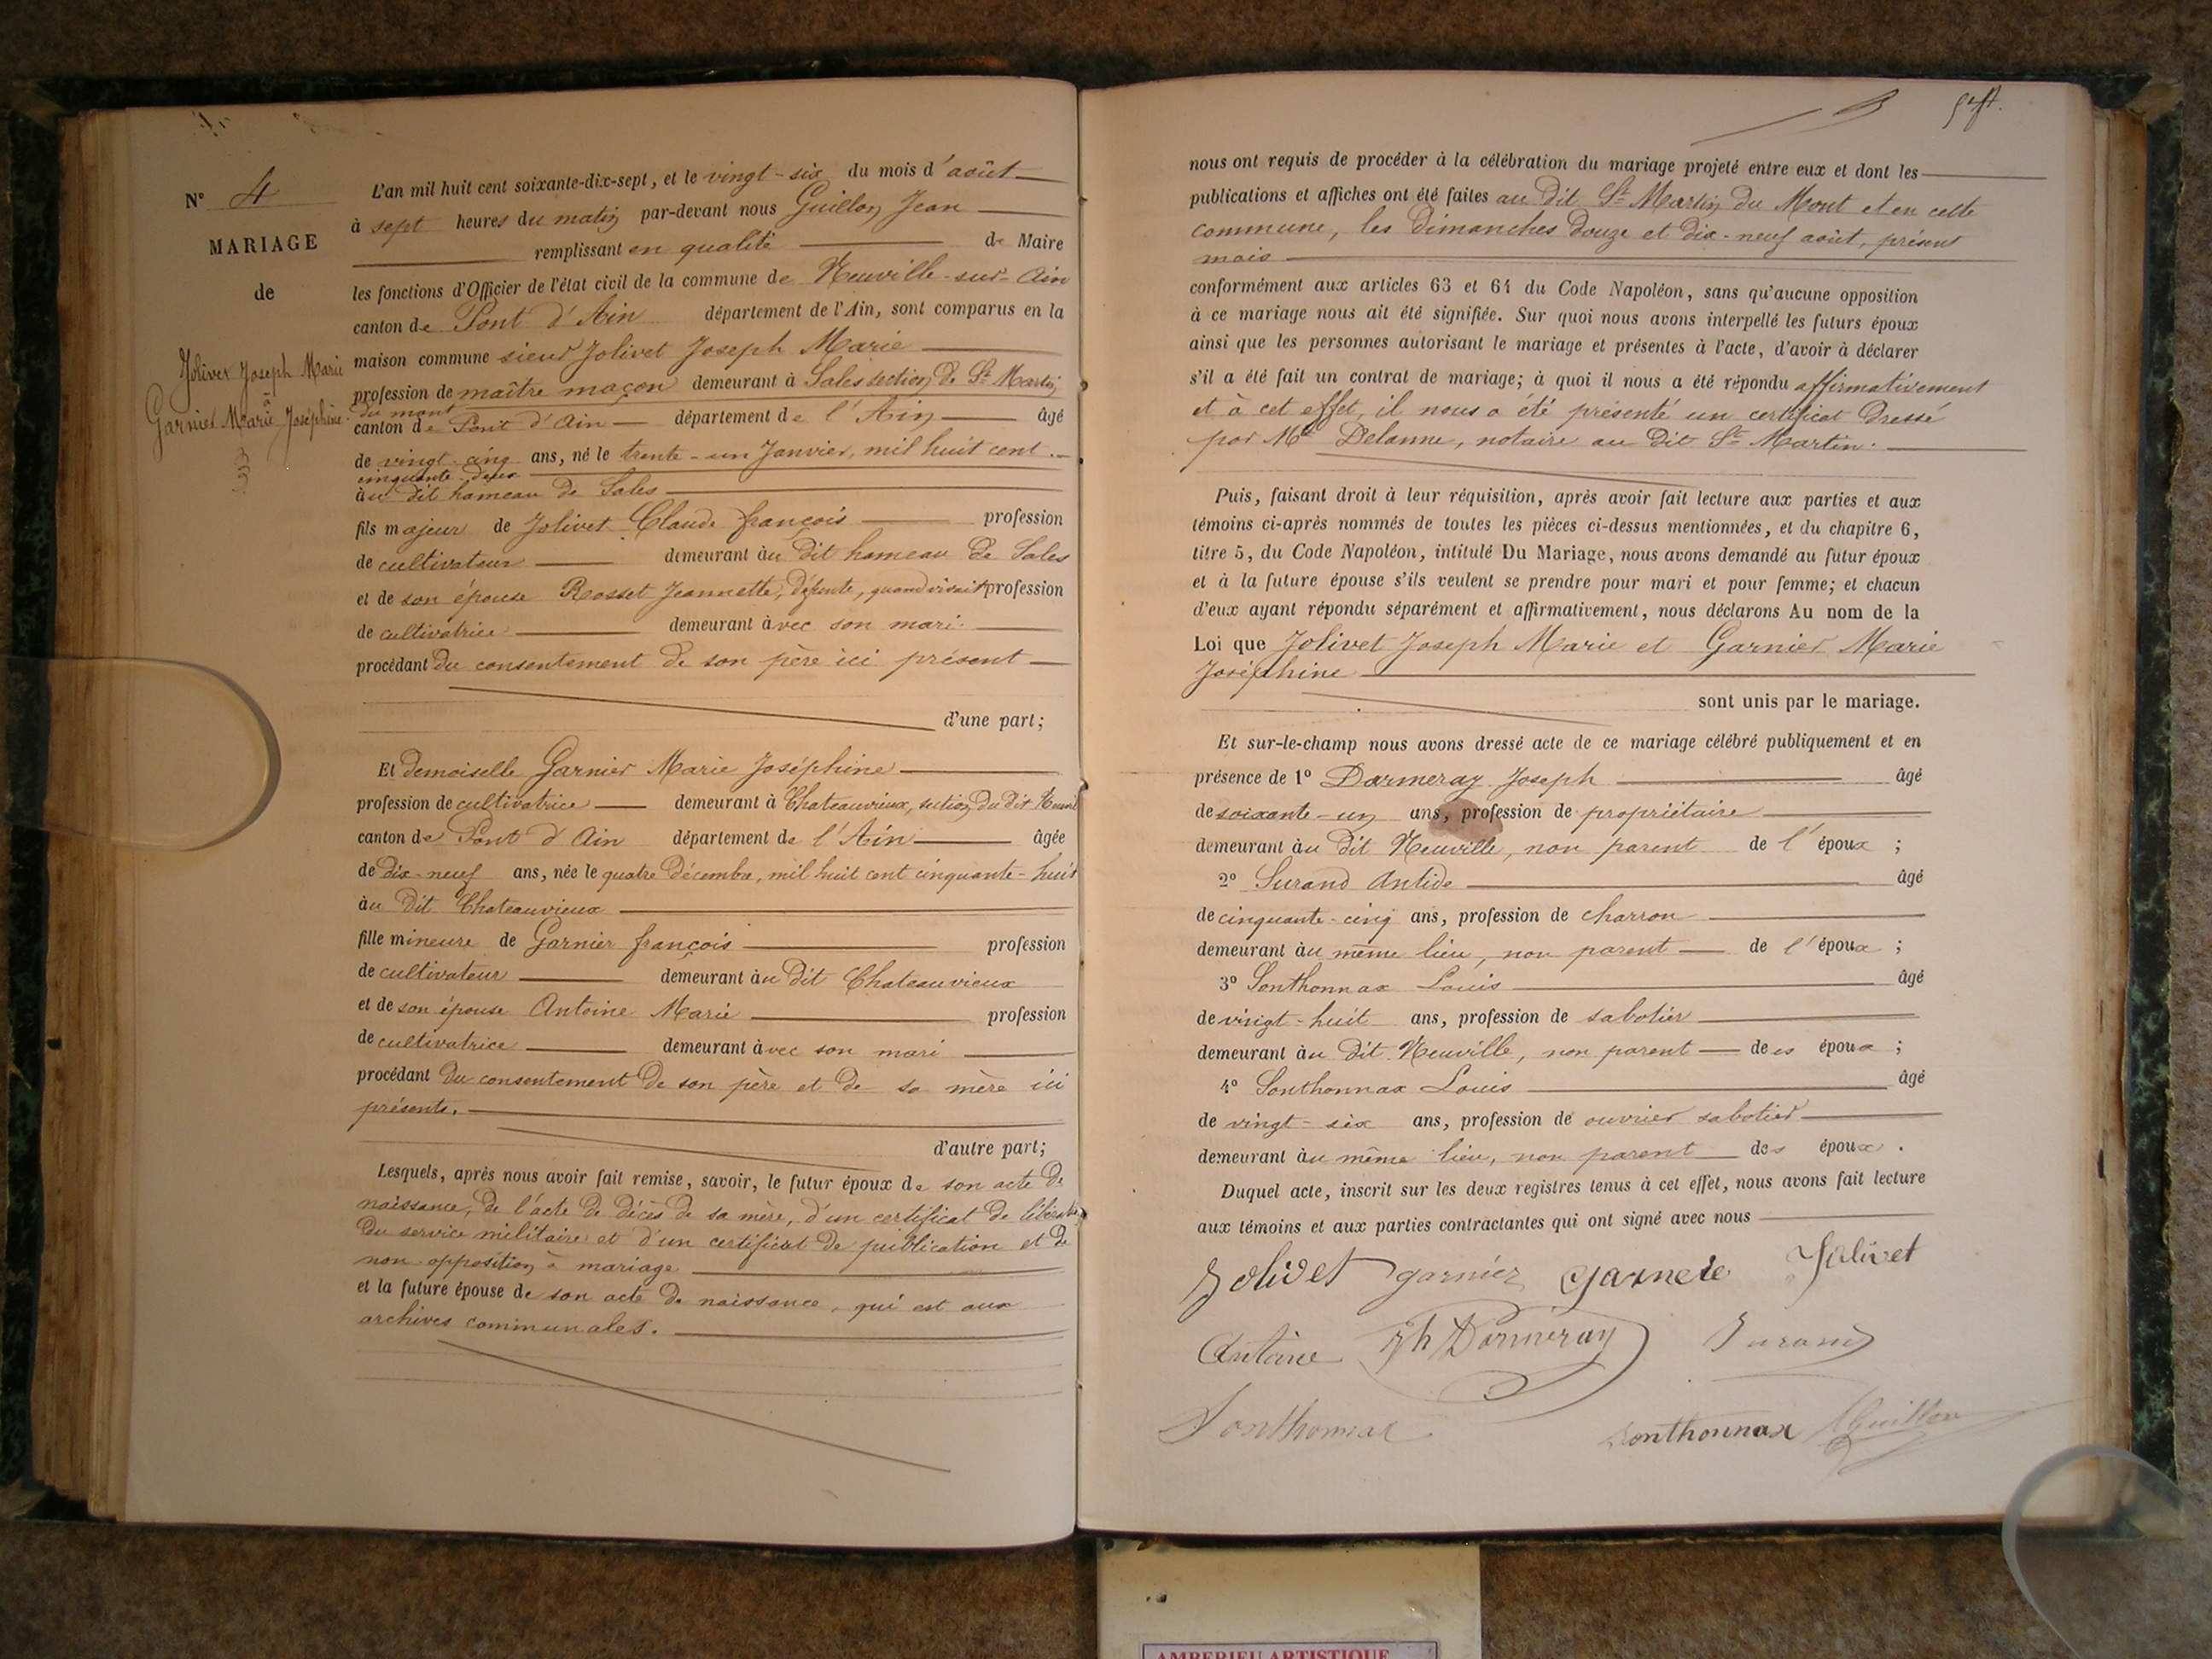 N° 4
MARIAGE
de
Jolivet Joseph Marie
à
Garnier Marie Joséphine.
L'an mil huit cent soixante-dix-sept, et le vingt-six du mois d'août
à sept heures du matin par-devant nous Guillon Jean
remplissant en qualité de Maire
les fonctions d'Officier de l'état civil de la commune de Neuville-sur-Ain
canton de Pont d'Ain département de l'Ain, sont comparus en la
maison commune sieur Jolivet Joseph Marie
profession de maître maçon demeurant à Sales section de St Martin
du mont
canton de Pont d'Ain département de l'Ain âgé
de vingt-cinq ans, né le trente-un Janvier, mil huit cent
cinquante-deux
au dit hameau de Sales
fils majeur de Jolivet Claude françois profession
de cultivateur demeurant au dit hameau de Sales
et de son épouse Rosset Jeannette, défunte, quand vivait profession
de cultivatrice demeurant avec son mari.
procédant du consentement de son père ici présent
d'une part;
Et demoiselle Garnier Marie Joséphine
profession de cultivatrice demeurant à Chateauvieux, section du dit Neuville
canton de Pont d'Ain département de l'Ain âgée
de dix-neuf ans, née le quatre Décembre, mil huit cent cinquante-huit
au dit Chateauvieux
fille mineure de Garnier françois profession
de cultivateur demeurant au dit Chateauvieux
et de son épouse Antoine Marie profession
de cultivatrice demeurant avec son mari
procédant du consentement de son père et de sa mère ici
présents.
d'autre part;
Lesquels, après nous avoir fait remise, savoir, le futur époux de son acte de
naissance, de l'acte de décès de sa mère, d'un certificat de
du service militaire et d'un certificat de publication et de
non-opposition à mariage
et la future épouse de son acte de naissance, qui est aux
archives communales.
nous ont requis de procéder à la célébration du mariage projeté entre eux et dont les
publications et affiches ont été faites au dit St Martin du Mont et en cette
commune, les Dimanches douze et dix-neuf août, présent
mois
conformément aux articles 63 et 64 du Code Napoléon, sans qu'aucune opposition
à ce mariage nous ait été signifiée. Sur quoi nous avons interpellé les futurs époux
ainsi que les personnes autorisant le mariage et présentes à l'acte, d'avoir à déclarer
s'il a été fait un contrat de mariage; à quoi il nous a été répondu affirmativement
et à cet effet, il nous a été présenté un certificat dressé
par Me Delanne, notaire au dit St Martin.
Puis, faisant droit à leur réquisition, après avoir fait lecture aux parties et aux
témoins ci-après nommés de toutes les pièces ci-dessus mentionnées, et du chapitre 6,
titre 5, du Code Napoléon, intitulé Du Mariage, nous avons demandé au futur époux
et à la future épouse s'ils veulent se prendre pour mari et pour femme; et chacun
d'eux ayant répondu séparément et affirmativement, nous déclarons Au nom de la
Loi que Jolivet Joseph Marie et Garnier Marie
Joséphine
sont unis par le mariage.
Et sur-le-champ nous avons dressé acte de ce mariage célébré publiquement et en
présence de 1° Darmeray Joseph âgé
de soixante-un ans, profession de propriétaire
demeurant au dit Neuville, non parent de l'époux ;
2° Surand Antide âgé
de cinquante-cinq ans, profession de charron
demeurant au même lieu, non parent de l'époux ;
3° Sonthonnax Louis âgé
de vingt-huit ans, profession de sabotier
demeurant au dit Neuville, non parent des époux ;
4° Sonthonnax Louis âgé
de vingt-six ans, profession de ouvrier sabotier
demeurant au même lieu, non parent des époux.
Duquel acte, inscrit sur les deux registres tenus à cet effet, nous avons fait lecture
aux témoins et aux parties contractantes qui ont signé avec nous
Jolivet garnier Jolivet
Antoine Jh Darmeray Surand
Sonthonnax Sonthonnax Guillon
AMBERIEU ARTISTIQUE